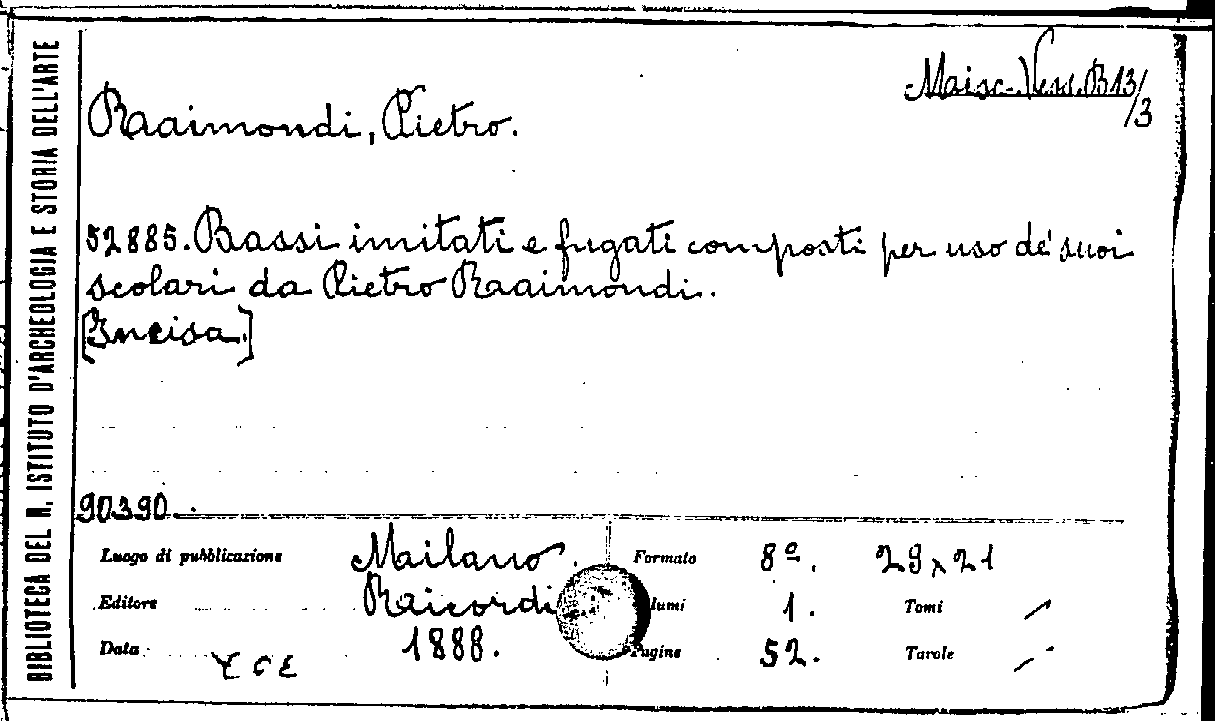 Misc. Vess. B 13/
/3
Raimondi, Pietro.
52885. Bassi imitati e fugati composti per uso de' suoi
scolari da Pietro Raimondi.
[Incisa.]
90390
Luogo di pubblicazione Milano Formato 8º. 29 x 21
Editore Ricordi lumi 1. Tomi /
Data 1888. Pagine 52. Tavole /
BIBLIOTECA DEL R. ISTITUTO D'ARCHEOLOGIA E STORIA DELL'ARTE